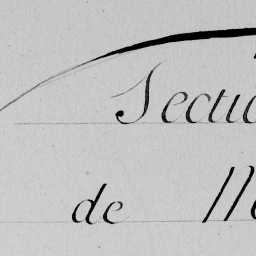 Sectio
de